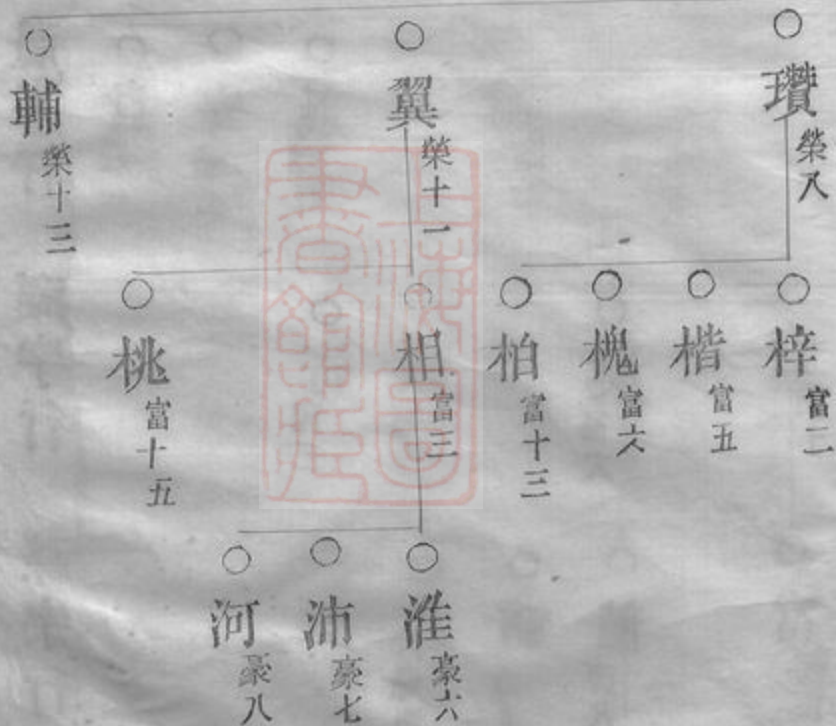 瓚 榮八
翼 榮十一
輔 榮十三
梓 富二
楷 富五
槐 富六
柏 富十三
相 富三
桃 富十五
淮 豪六
沛 豪七
河 豪八
上海圖書館藏